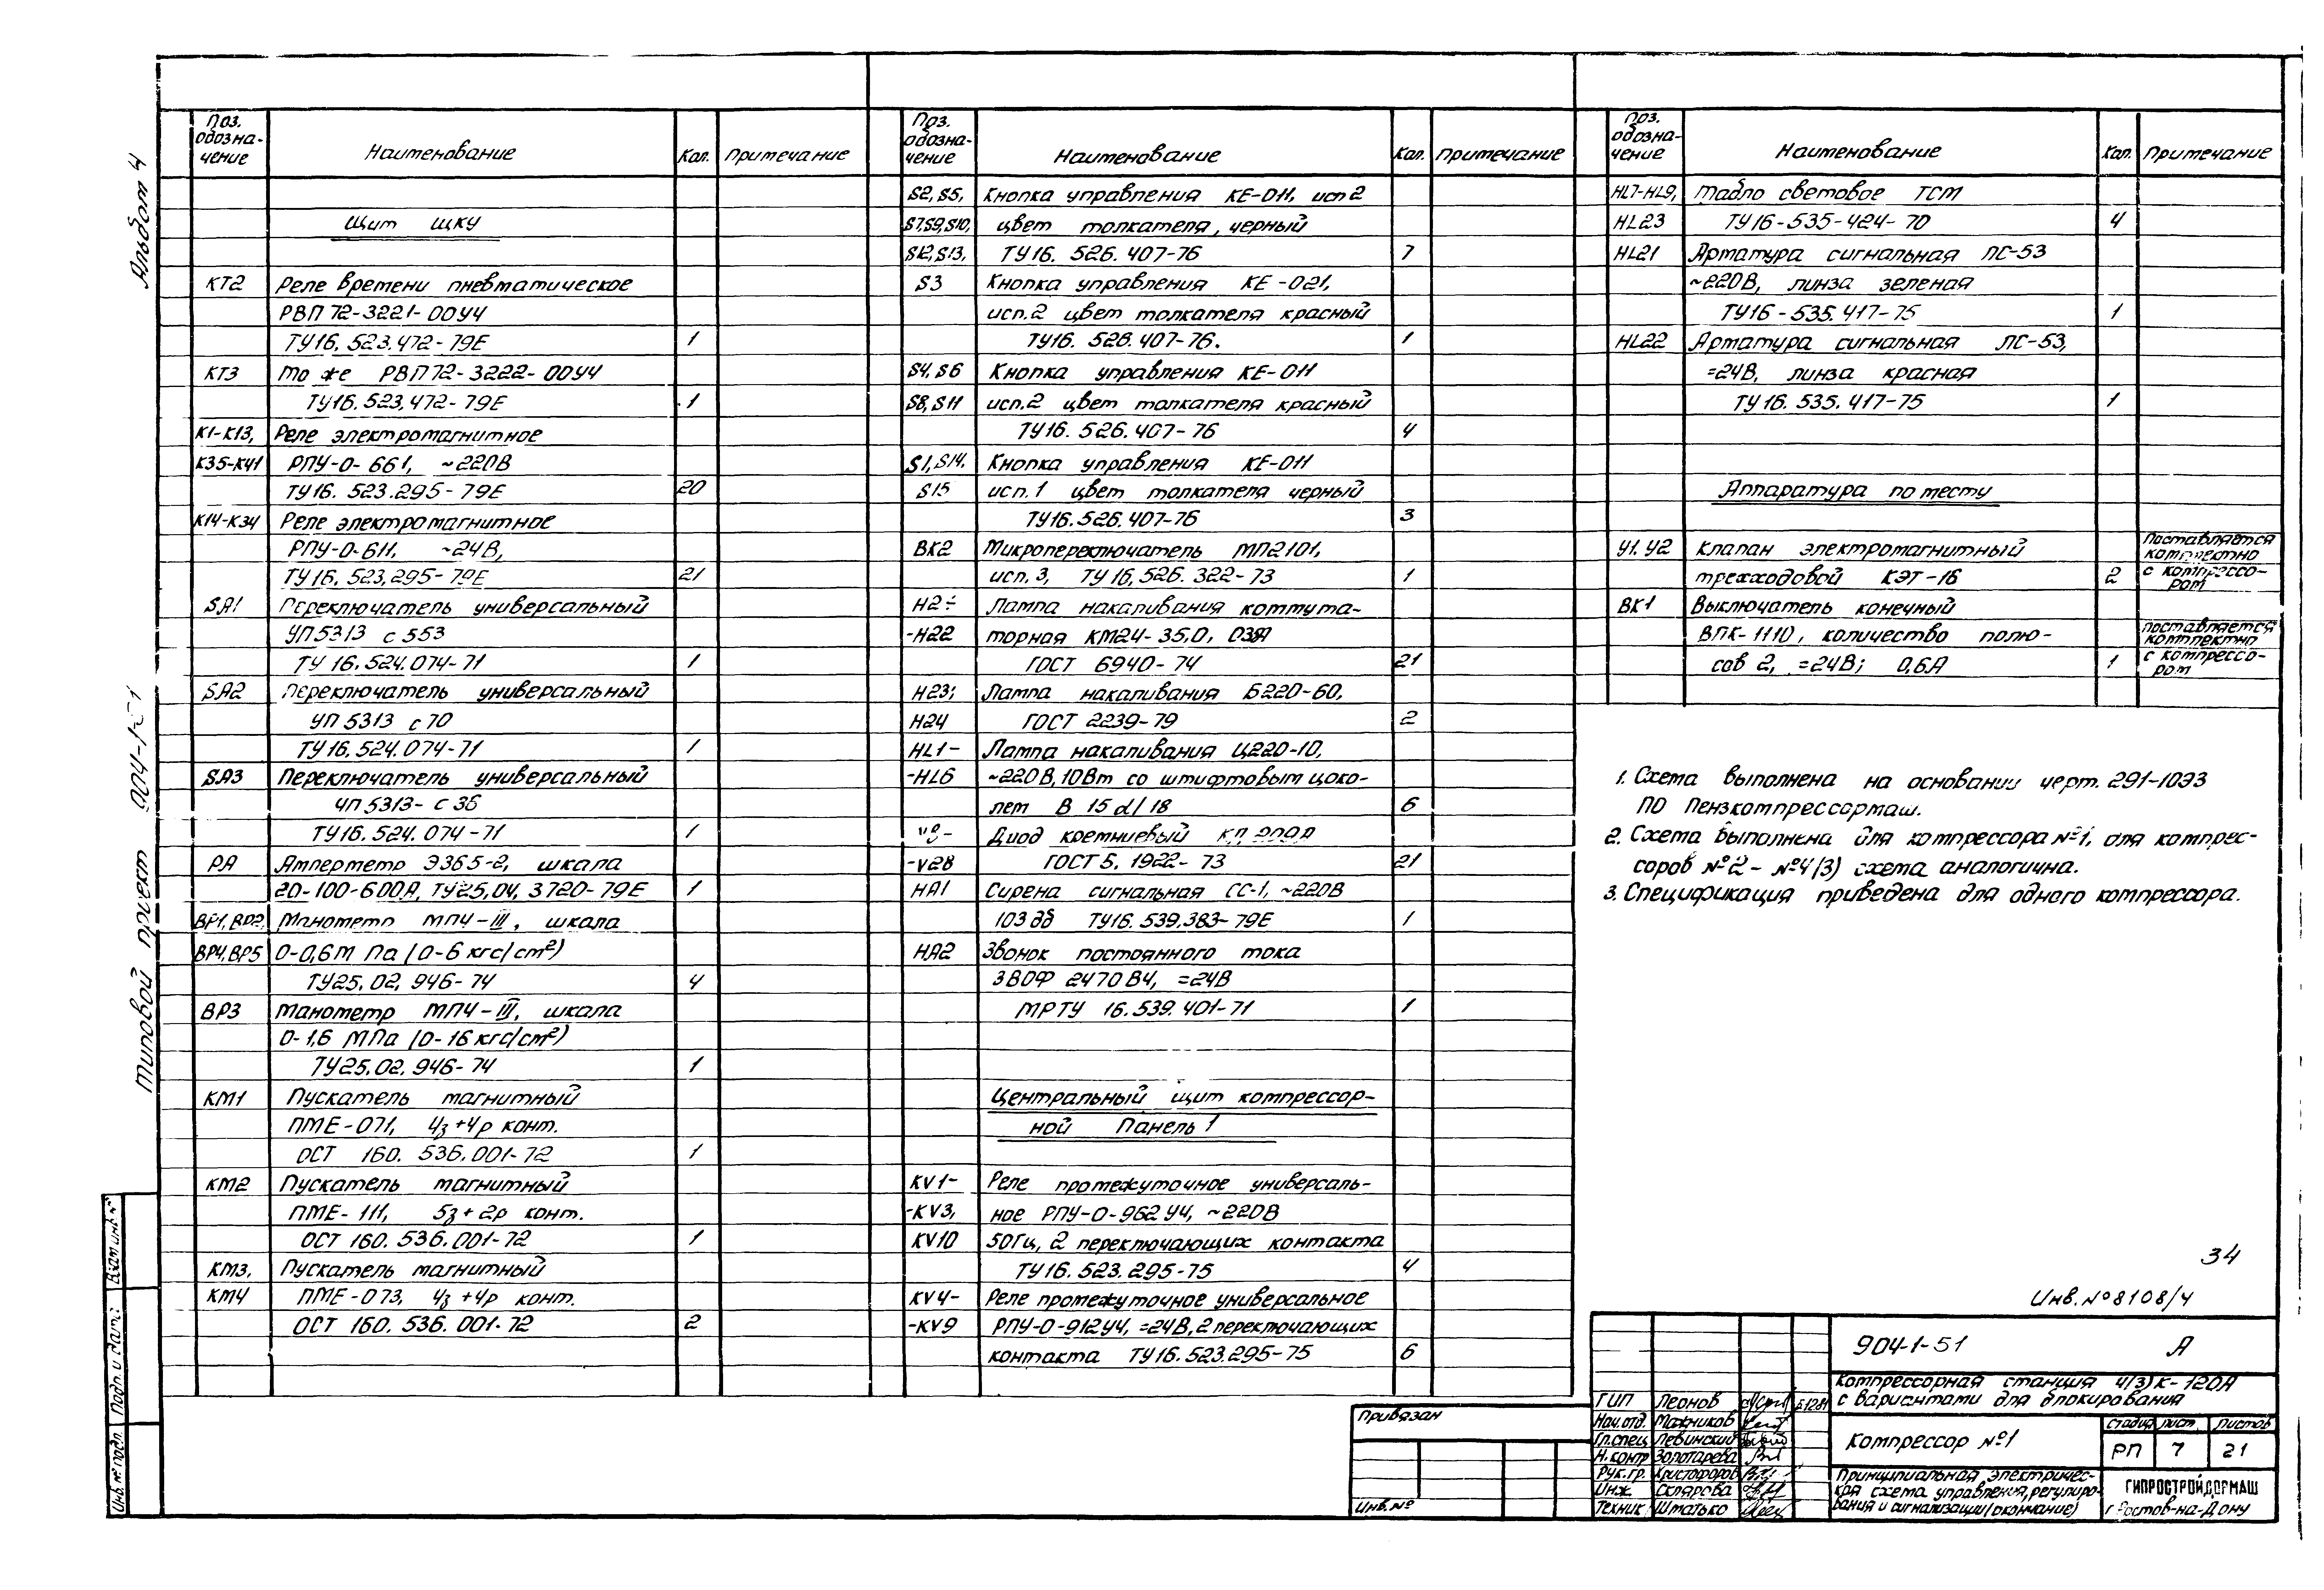 Альбом 4
Типовой проект 904-1-51
Поз. обозна- чение Наименование Кол. Примечание
Щит ШКУ
КТ2 Реле времени пневматическое
РВП 72-3221-00У4
ТУ16.523.472-79Е 1
КТ3 То же РВП72-3222-00У4
ТУ16.523.472-79Е 1
К1-К13, Реле электромагнитное
К35-К41 РПУ-0-661, ~220В
ТУ16.523.295-79Е 20
К14-К34 Реле электромагнитное
РПУ-0-611, ~24В,
ТУ16.523.295-79Е 21
SA1 Переключатель универсальный
УП5313 с 553
ТУ 16.524.074-71 1
SA2 Переключатель универсальный
УП 5313 с 70
ТУ16.524.074-71 1
SA3 Переключатель универсальный
УП 5313-с 36
ТУ16.524.074-71 1
РА Амперметр Э365-2, шкала
20-100-600А, ТУ25.04.3720-79Е 1
ВР1, ВР2, Манометр МП4-III, шкала
ВР4, ВР5 0-0,6 М Па (0-6 кгс/см²)
ТУ25.02.946-74 4
ВР3 Манометр МП4-III, шкала
0-1,6 МПа (0-16 кгс/см²)
ТУ25.02.946-74 1
КМ1 Пускатель магнитный
ПМЕ-071, 4з+4р конт.
ОСТ 160.536.001-72 1
КМ2 Пускатель магнитный
ПМЕ-111, 5з+2р конт.
ОСТ 160.536.001-72 1
КМ3, Пускатель магнитный
КМ4 ПМЕ-073, 4з+4р конт.
ОСТ 160.536.001-72 2
Поз. обозна- чение Наименование Кол. Примечание
S2, S5, Кнопка управления КЕ-011, исп 2
S7, S9, S10, цвет толкателя, черный
S12, S13, ТУ16.526.407-76 7
S3 Кнопка управления КЕ-021,
исп.2 цвет толкателя красный
ТУ16.526.407-76. 1
S4, S6 Кнопка управления КЕ-011
S8, S11 исп.2 цвет толкателя красный
ТУ16.526.407-76 4
S1, S14, Кнопка управления КЕ-011
S15 исп.1 цвет толкателя черный
ТУ16.526.407-76 3
ВК2 Микропереключатель МП2101,
исп.3, ТУ 16.526.322-73 1
Н2÷ Лампа накаливания коммута-
-Н22 торная КМ24-35,0,
ГОСТ 6940-74 21
Н23; Лампа накаливания Б220-60,
Н24 ГОСТ 2239-79 2
HL1- Лампа накаливания Ц220-10,
-HL6 ~220В, 10Вт со штифтовым цоко-
лем В 15 d/18 6
Диод кремниевый КД
-V28 ГОСТ 5.1922-73 21
НА1 Сирена сигнальная СС-1, ~220В
103 дб ТУ16.539.383-79Е 1
НА2 Звонок постоянного тока
ЗВОФ 2470В4, =24В
МРТУ 16.539.401-71 1
Центральный щит компрессор-
ной Панель 1
KV1- Реле промежуточное универсаль-
-KV3, ное РПУ-0-962У4, ~220В
KV10 50Гц, 2 переключающих контакта
ТУ16.523.295-75 4
KV4- Реле промежуточное универсальное
-KV9 РПУ-0-912У4, =24В, 2 переключающих
контакта ТУ16.523.295-75 6
Поз. обозна- чение Наименование Кол. Примечание
HL7-HL9, Табло световое ТСМ
HL23 ТУ16-535-424-70 4
HL21 Арматура сигнальная ЛС-53
~220В, линза зеленая
ТУ16-535.417-75 1
HL22 Арматура сигнальная ЛС-53,
=24В, линза красная
ТУ16.535.417-75 1
Аппаратура по месту
У1, У2 Клапан электромагнитный Поставляется комплектно
трехходовой КЭТ-16 2 с компрессо- ром
ВК1 Выключатель конечный
ВПК-1110, количество полю- поставляется комплектно
сов 2, =24В; 0,6А 1 с компрессо- ром
1. Схема выполнена на основании черт. 291-10Э3
ПО Пензкомпрессормаш.
2. Схема выполнена для компрессора №1, для компрес-
соров №2-№4(3) схема аналогична.
3. Спецификация приведена для одного компрессора.
34
Инв. №8108/4
904-1-51 А
Компрессорная станция 4(3)К-120А
с вариантами для блокирования
Компрессор №1
стадия лист листов
РП 7 21
Принципиальная электричес-
кая схема управления, регулиро-
вания и сигнализации (окончание)
ГИПРОСТРОЙДОРМАШ
г. Ростов-на-Дону
ГИП Леонов
Нач. отд. Мажников
Гл. спец. Левинский
Н. контр Золотарева
Рук. гр. Христофоров
Инж. Склярова
Техник Шматько
Привязан
Инв. №
Взам инв. №
Подп. и дата
Инв. № подл.